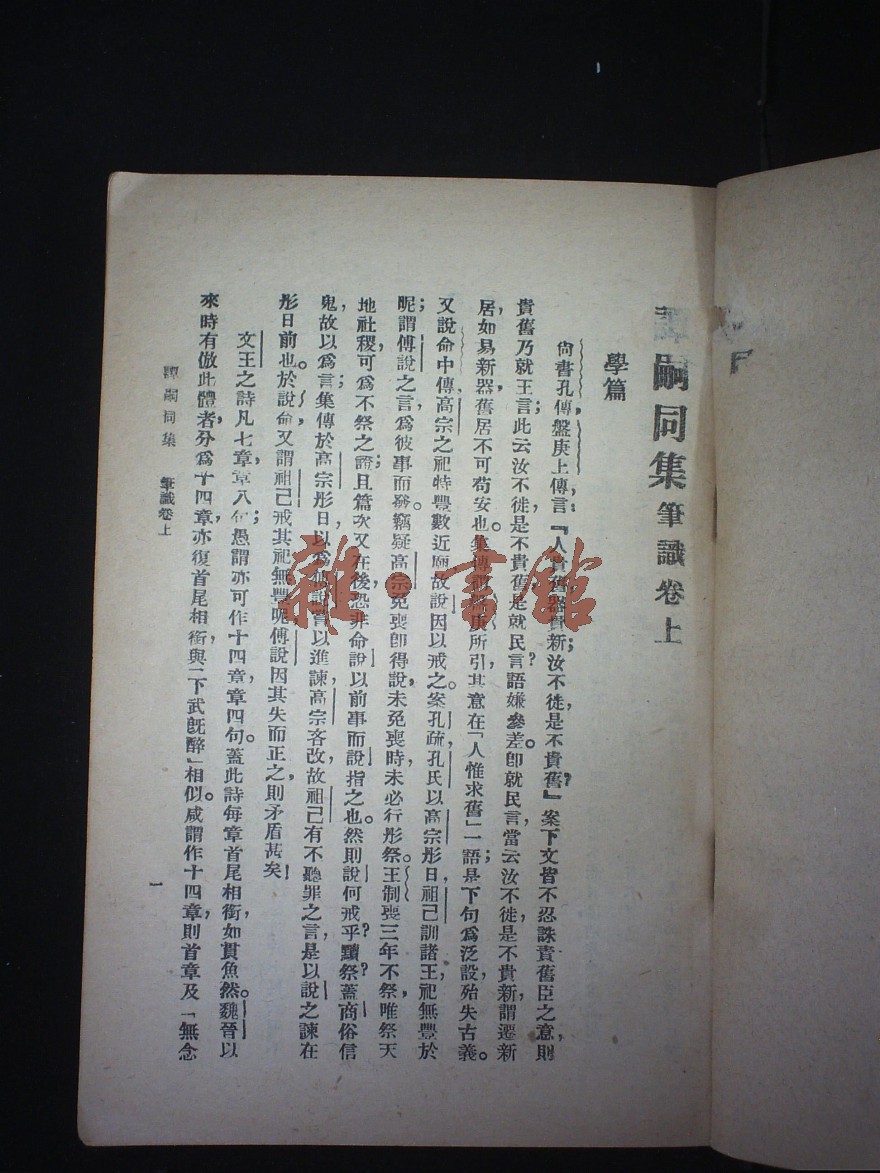 譚嗣同集 筆識卷上
學篇
尙書孔傳盤庚上傳言，『人貴舊，器貴新；汝不徙，是不貴舊？』案下文皆不忍誅責舊臣之意，則
貴舊乃就王言；此云汝不徙，是不貴舊，是就民言？語嫌參差。卽就民言，當云汝不徙，是不貴新，謂遷新
居，如易新器，舊居不可苟安也。集傳謂盤庚所引，其意在「人惟求舊」一語；是下句爲泛設，殆失古義。
又說命中傳，高宗之祀，特豐數近廟，故說因以戒之。案孔疏，孔氏以高宗肜日，祖己訓諸王，祀無豐於
昵；謂傅說之言，爲彼事而發。竊疑高宗免喪卽得說，未免喪時，未必行肜祭。王制喪三年不祭，唯祭天
地社稷，可爲不祭之證；且篇次又在後，恐非命說以前事而說指之也。然則說何戒乎？黷祭蓋商俗信
鬼，故以爲言；集傳於高宗肜日，以爲傅說嘗以進諫，高宗吝改，故祖己有不聽罪之言，是以說之諫在
肜日前也。於說命，又謂祖己戒其祀無豐昵，傅說因其失而正之，則矛盾甚矣！
文王之詩凡七章，章八句；愚謂亦可作十四章，章四句。蓋此詩每章首尾相銜，如貫魚然。魏晉以
來時有倣此體者，分爲十四章，亦復首尾相銜，與「下武旣醉」相似。咸謂作十四章，則首章及「無念
譚嗣同集 筆識卷上
一
雜·書館